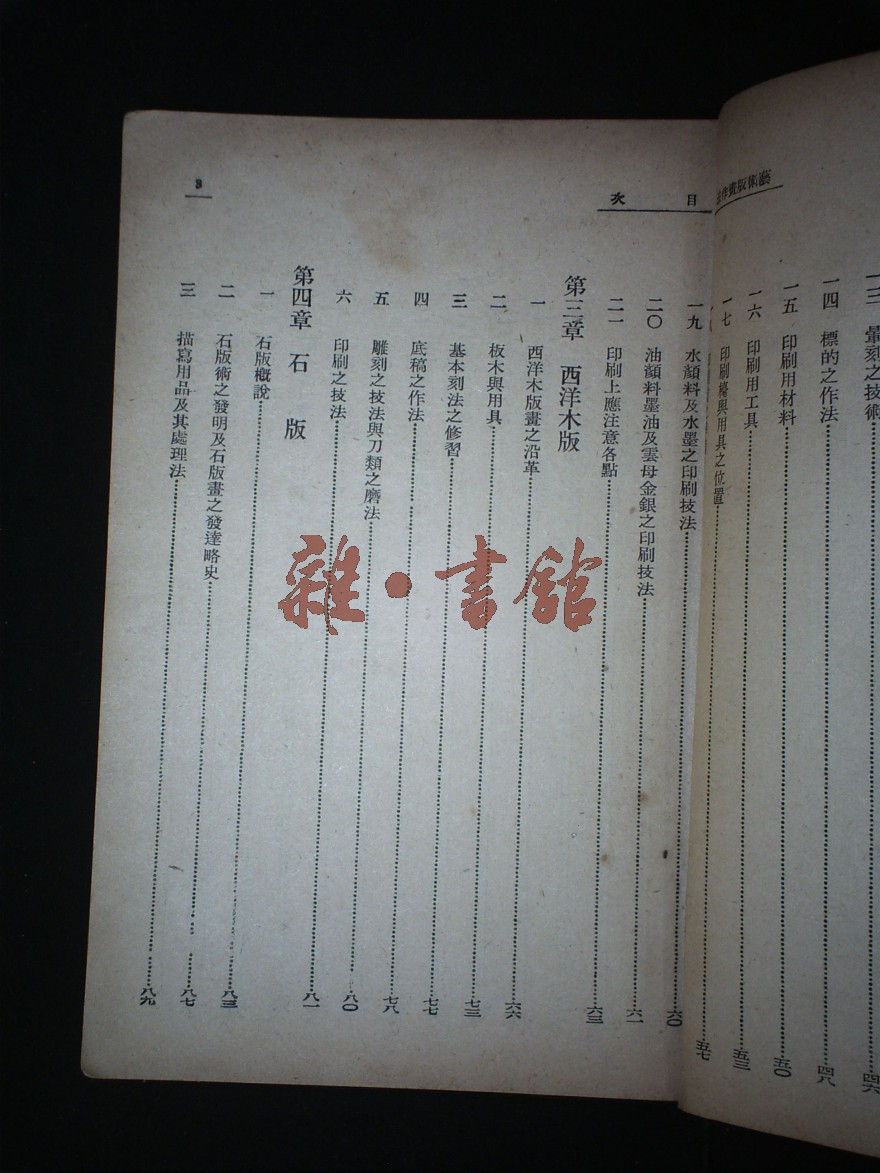 藝術版畫作
一三 暈刻之技術 四六
一四 標的之作法 四八
一五 印刷用材料 五〇
一六 印刷用工具 五三
一七 印刷與用具之位置 五七
目 次
3
一九 水顏料及水墨之印刷技法 六〇
二〇 油顏料墨油及雲母金銀之印刷技法 六一
二一 印刷上應注意各點 六三
第三章 西洋木版
一 西洋木版畫之沿革 六六
二 板木與用具 七三
三 基本刻法之修習 七七
四 底稿之作法 七八
五 雕刻之技法與刀類之磨法 八〇
六 印刷之技法 八一
第四章 石版
一 石版概說 八三
二 石版術之發明及石版畫之發達略史 八七
三 描寫用品及其處理法 八九
雜·書館